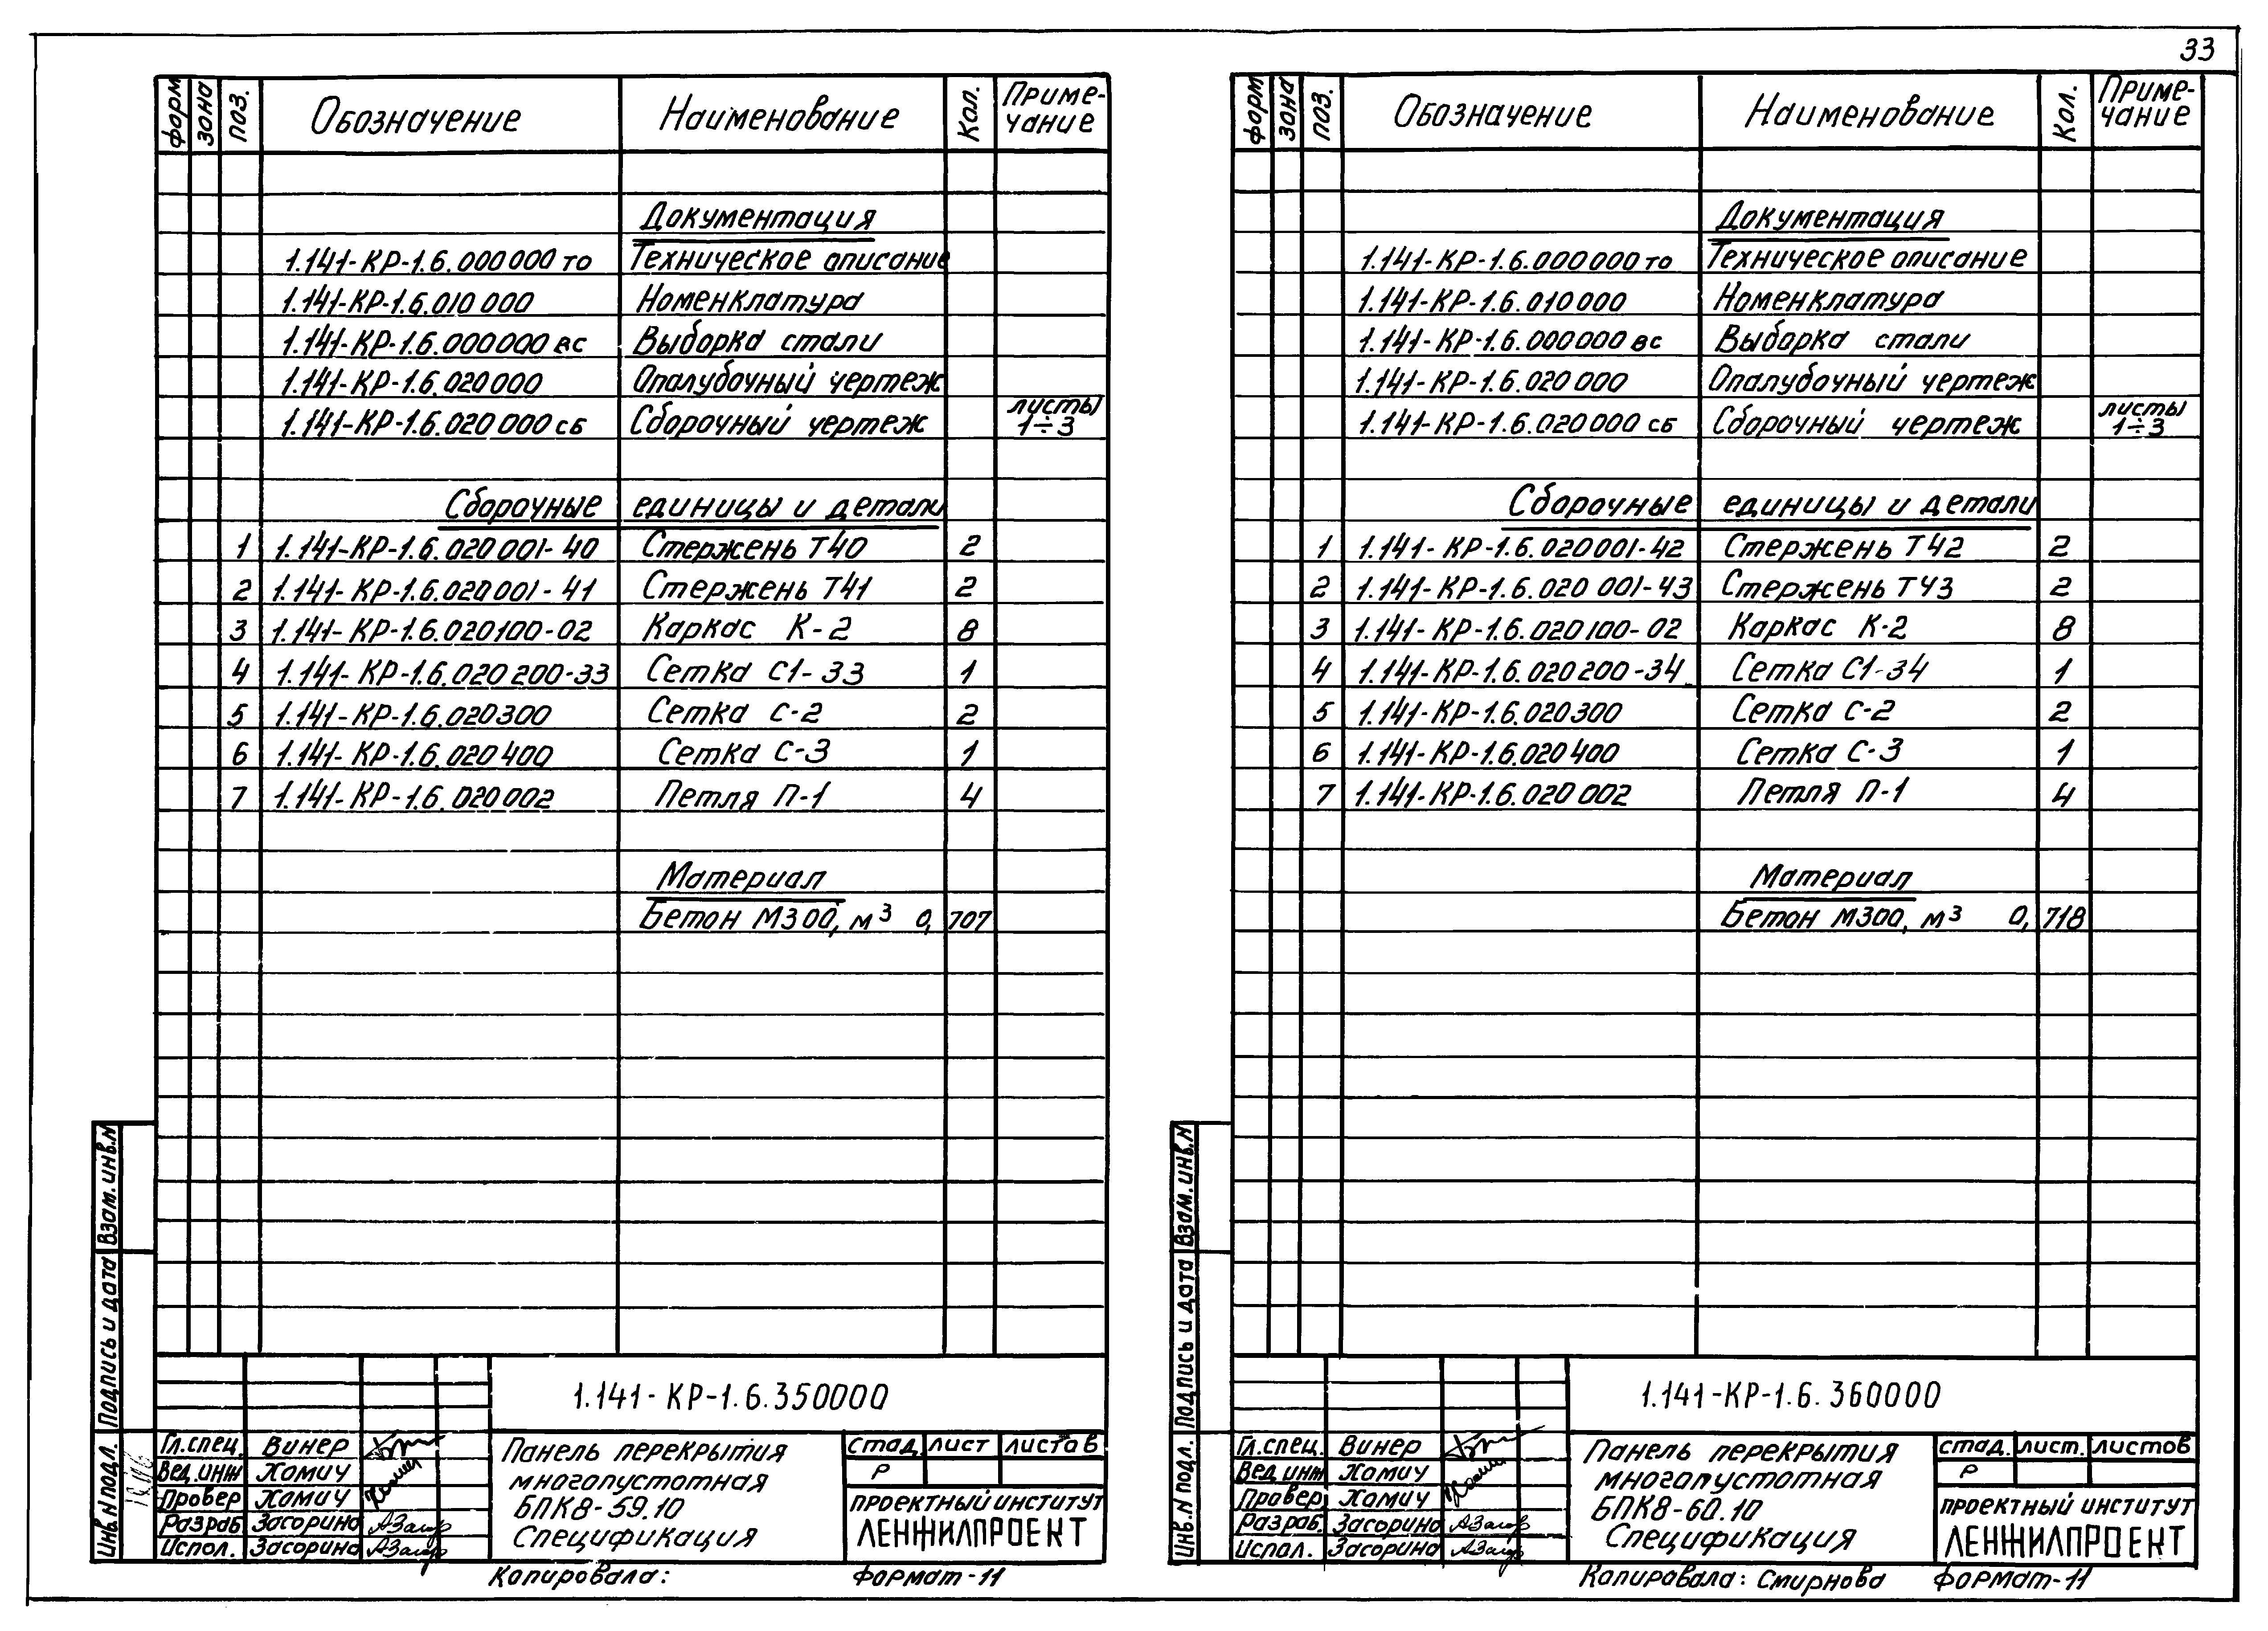 33
форм зона поз. Обозначение Наименование Кол. Приме-
чание
Документация
1.141-КР-1.6.000000 ТО Техническое описание
1.141-КР-1.6.010 000 Номенклатура
1.141-КР-1.6.000000 ВС Выборка стали
1.141-КР-1.6.020000 Опалубочный чертеж
1.141-КР-1.6.020 000 СБ Сборочный чертеж листы
1÷3
Сборочные единицы и детали
1 1.141-КР-1.6.020 001-40 Стержень Т40 2
2 1.141-КР-1.6.020 001-41 Стержень Т41 2
3 1.141-КР-1.6.020100-02 Каркас К-2 8
4 1.141-КР-1.6.020 200-33 Сетка С1-33 1
5 1.141-КР-1.6.020300 Сетка С-2 2
6 1.141-КР-1.6.020 400 Сетка С-3 1
7 1.141-КР-1.6.020 002 Петля П-1 4
Материал
Бетон М300, м³ 0,707
Взам. инв. N
Подпись и дата
Инв. N подл.
1.141-КР-1.6.350000
Гл.спец. Винер
Вед.инж Хомич
Провер Хомич
Разраб Засорина
Испол. Засорина
Панель перекрытия
многопустотная
БПК8-59.10
Спецификация
стад. лист листов
Р
ПРОЕКТНЫЙ ИНСТИТУТ
ЛЕНЖИЛПРОЕКТ
Копировала: Формат-11
форм зона поз. Обозначение Наименование Кол. Приме-
чание
Документация
1.141-КР-1.6.000000 ТО Техническое описание
1.141-КР-1.6.010000 Номенклатура
1.141-КР-1.6.000000 ВС Выборка стали
1.141-КР-1.6.020 000 Опалубочный чертеж
1.141-КР-1.6.020 000 СБ Сборочный чертеж листы
1÷3
Сборочные единицы и детали
1 1.141-КР-1.6.020001-42 Стержень Т42 2
2 1.141-КР-1.6.020 001-43 Стержень Т43 2
3 1.141-КР-1.6.020100-02 Каркас К-2 8
4 1.141-КР-1.6.020 200-34 Сетка С1-34 1
5 1.141-КР-1.6.020300 Сетка С-2 2
6 1.141-КР-1.6.020 400 Сетка С-3 1
7 1.141-КР-1.6.020 002 Петля П-1 4
Материал
Бетон М300, м³ 0,718
Взам. инв. N
Подпись и дата
Инв. N подл.
1.141-КР-1.6.360000
Гл.спец. Винер
Вед.инж Хомич
Провер Хомич
Разраб. Засорина
Испол. Засорина
Панель перекрытия
многопустотная
БПК8-60.10
Спецификация
стад. лист. листов
Р
ПРОЕКТНЫЙ ИНСТИТУТ
ЛЕНЖИЛПРОЕКТ
Копировала: Смирнова Формат-11